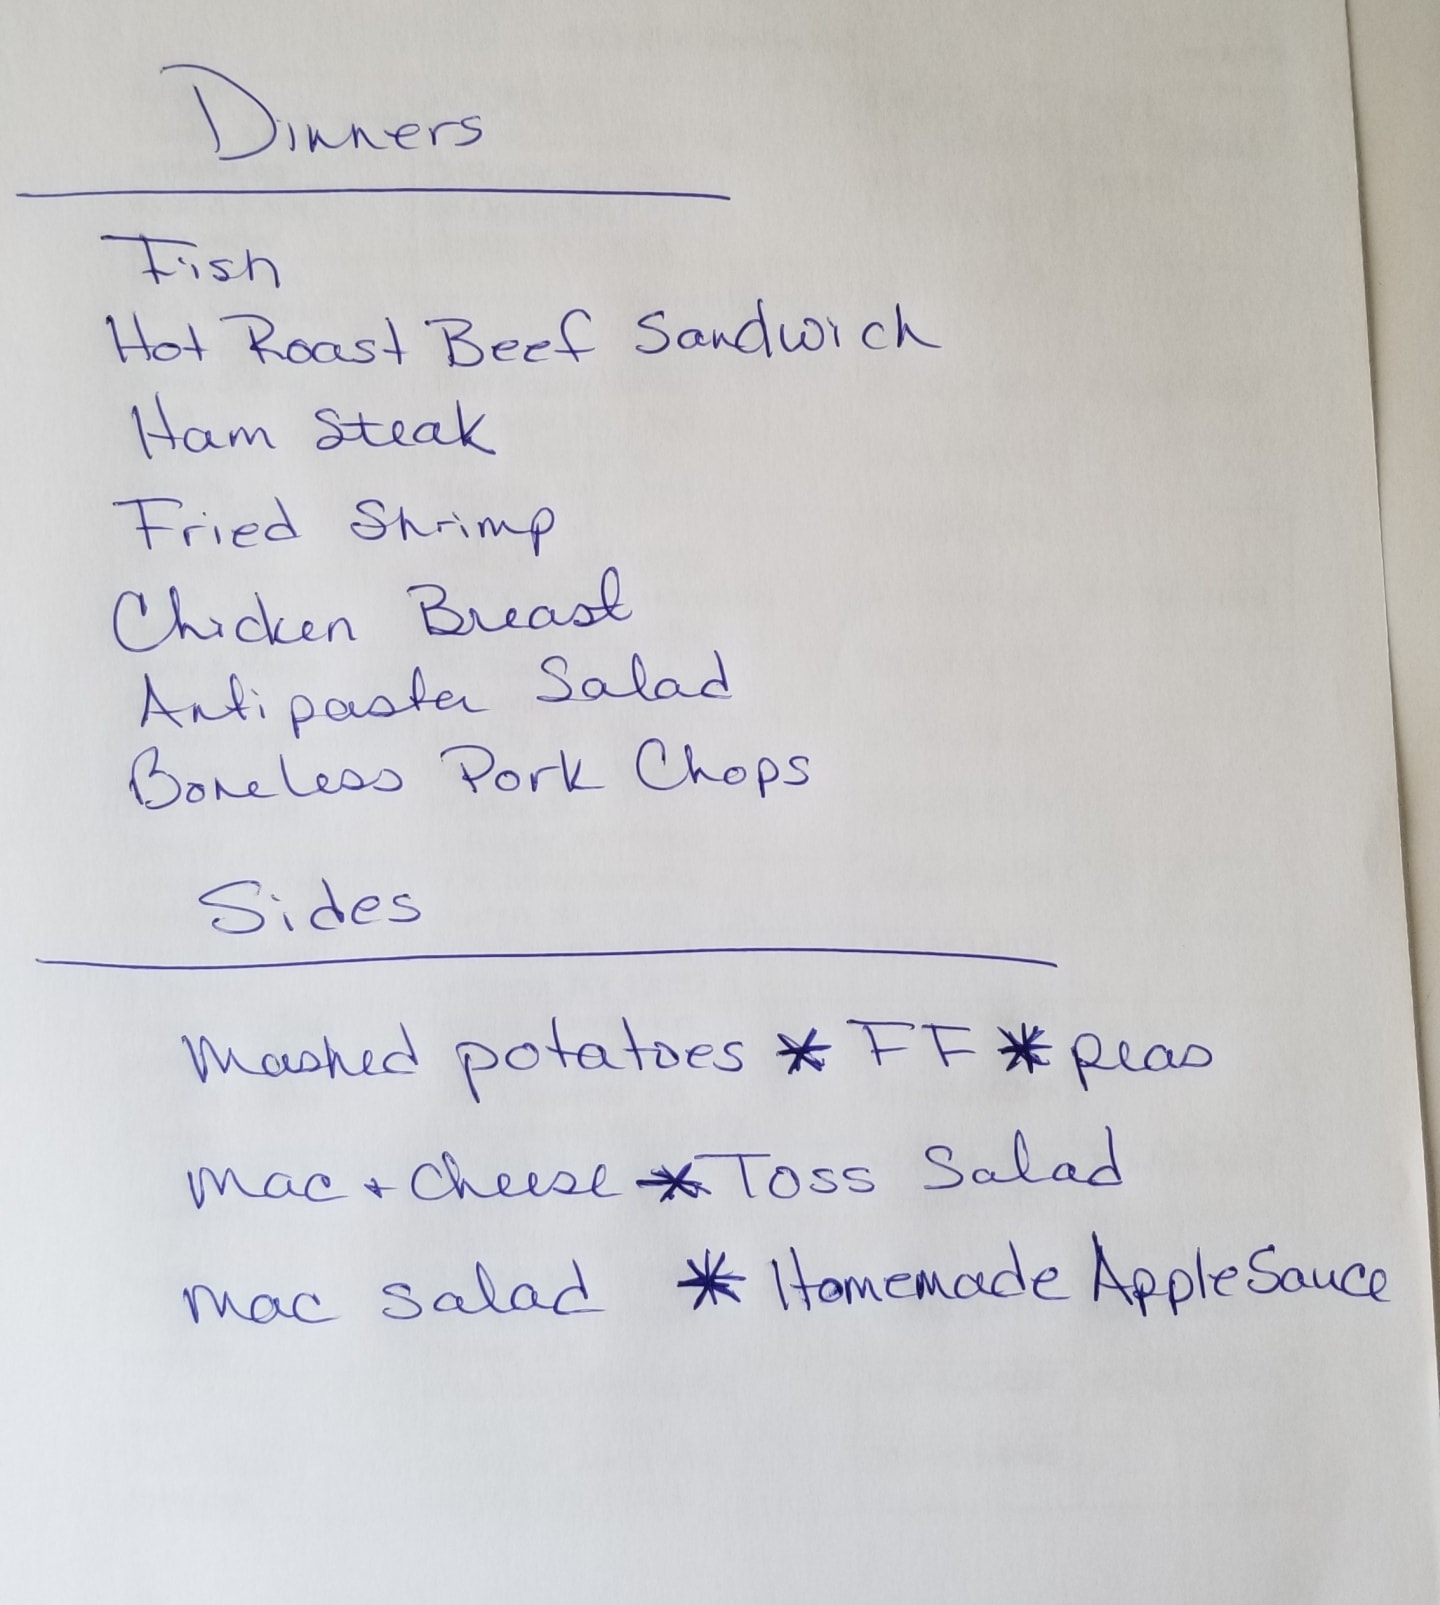 Dinners
Fish
Hot Roast Beef Sandwich
Ham Steak
Fried Shrimp
Chicken Breast
Antipasta Salad
Boneless Pork Chops
Sides
Mashed potatoes * FF * peas
Mac + Cheese * Toss Salad
Mac Salad * Homemade AppleSauce